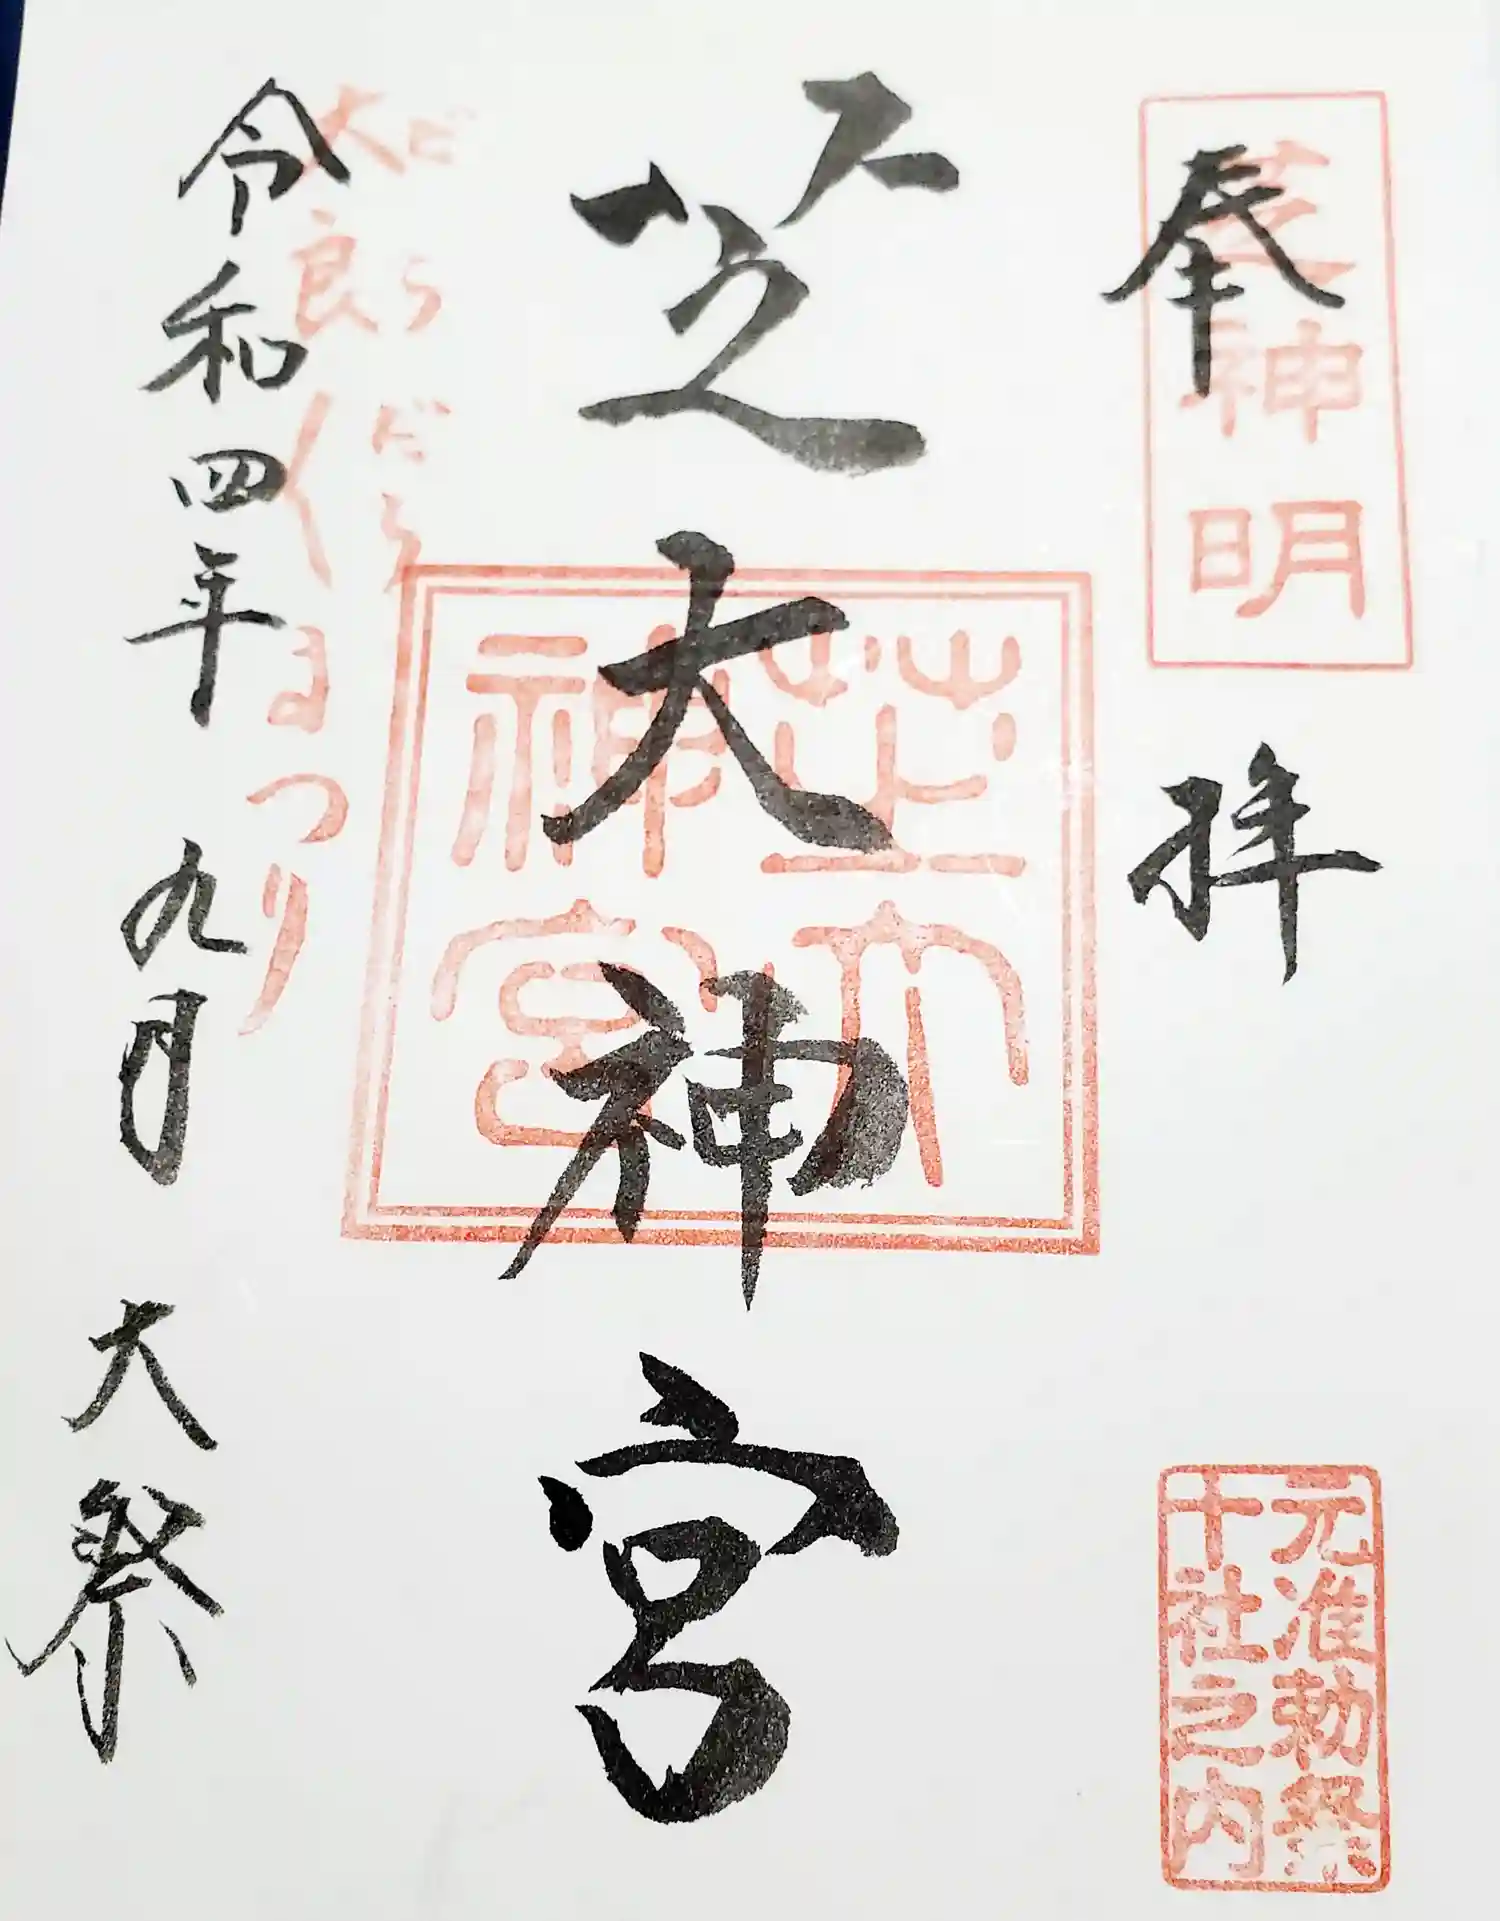 奉拝
芝神明
元准勅祭
十社之内
芝大神宮
芝大
神宮
だらだら
大良くまつり
令和四年九月大祭